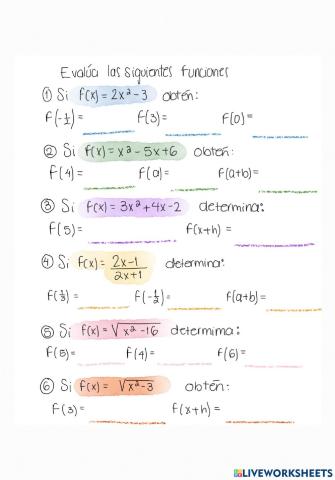 Evalúa las siguientes funciones
① Si f(x) = 2x² - 3 obtén:
f(-½) = f(3) = f(0) =
② Si f(x) = x² - 5x + 6 obtén:
f(4) = f(a) = f(a+b) =
③ Si f(x) = 3x² + 4x - 2 determina:
f(5) = f(x+h) =
④ Si f(x) = (2x-1)/(2x+1) determina:
f(½) = f(-½) = f(a+b) =
⑤ Si f(x) = √(x² - 16) determina:
f(5) = f(4) = f(6) =
⑥ Si f(x) = √(x² - 3) obtén:
f(3) = f(x+h) =
LIVEWORKSHEETS